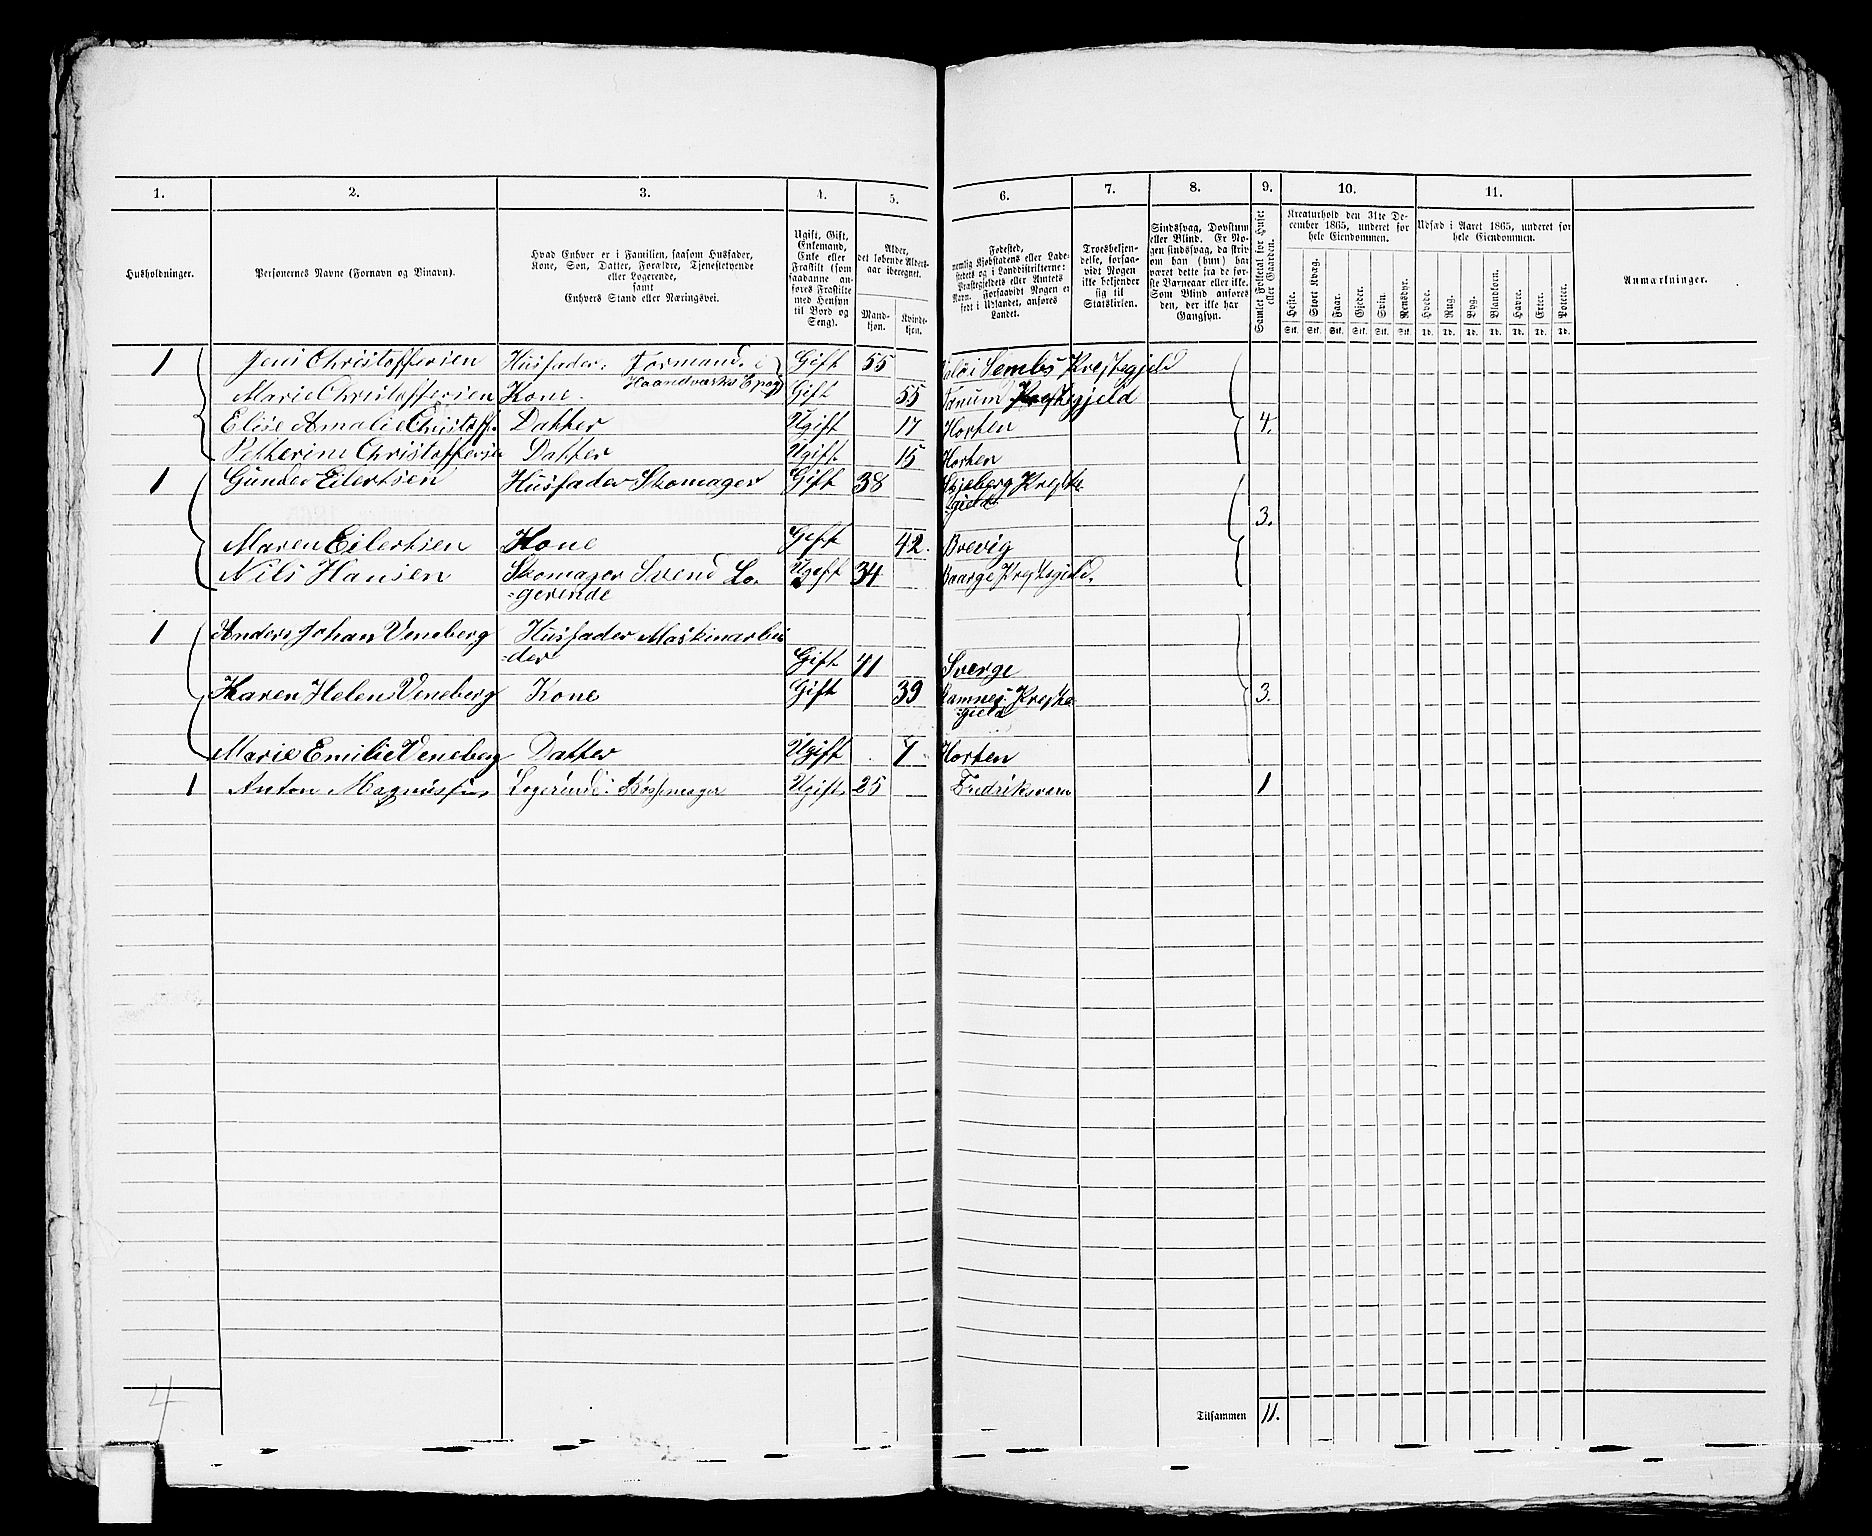 1. 2. 3. 4. 5. 6. 7. 8. 9. 10. 11.
Husholdninger.
Personernes Navne (Fornavn og Binavn).
Hvad Enhver er i Familien, saasom Husfader,
Kone, Søn, Datter, Forældre, Tjenestetyende
eller Logerende,
samt
Enhvers Stand eller Næringsvei.
Ugift, Gift,
Enkemand,
Enke eller
Fraskilt (som
saadanne an-
føres Fraskilte
med Hensyn
til Bord og
Seng).
Alder,
det løbende Alders-
aar iberegnet.
Mand-
kjøn.
Kvinde-
kjøn.
Fødested,
nemlig Kjøbstadens eller Lade-
stedets og i Landdistrikterne:
Præstegjeldets eller Amtets
Navn. Forsaavidt Nogen er
født i Udlandet, anføres
Landet.
Troesbekjen-
delse, forsaa-
vidt Nogen
ikke bekjender
sig til
Statskirken.
Sindssvag, Døvstum
eller Blind. Er No-
gen sindssvag, da skriv
om han (hun) har
været dette fra de før-
ste Barneaar eller ikke.
Som Blind anføres
den, der ikke har
Gangsyn.
Samlet Folketal for Huset
eller Gaarden.
Kreaturhold den 31te De-
cember 1865, underet for
hele Eiendommen.
Heste. Stort Kvæg. Faar. Gjeder. Svin. Rensdyr.
Stk. Stk. Stk. Stk. Stk. Stk.
Udsæd i Aaret 1865, underet for
hele Eiendommen.
Hvede. Rug. Byg. Blandkorn. Havre. Erter. Poteter.
Td. Td. Td. Td. Td. Td. Td.
Anmærkninger.
1 Jens Christoffersen Husfader. Formand i Gift 55 Sembs Præstegjeld
Haandværks
Marie Christoffersen Kone. Gift 55 Tanum Præstegjeld
Elise Amalie Christoff. Datter Ugift 17 Horten 4.
Petherine Christoffersen Datter Ugift 15 Horten
1 Gunder Eilertsen Husfader Skomager Gift 38 Skjeberg Præste
gjeld
3.
Maren Eilertsen Kone Gift 42. Brevig
Nils Hansen Skomager Svend Lo- Ugift 34 Baarge Præstegjeld.
=gerende
1 Anders Johan Veneberg Husfader Maskinarbei
=der Gift 41 Sverge
Karen Helene Veneberg Kone Gift 39 Ramnes Præste 3.
=gjeld
Marie Emilie Veneberg Datter Ugift 7 Horten
1 Anton Magnussen Logerende: Bøssemager Ugift 25 Fredriksværn 1
4
Tilsammen 11.